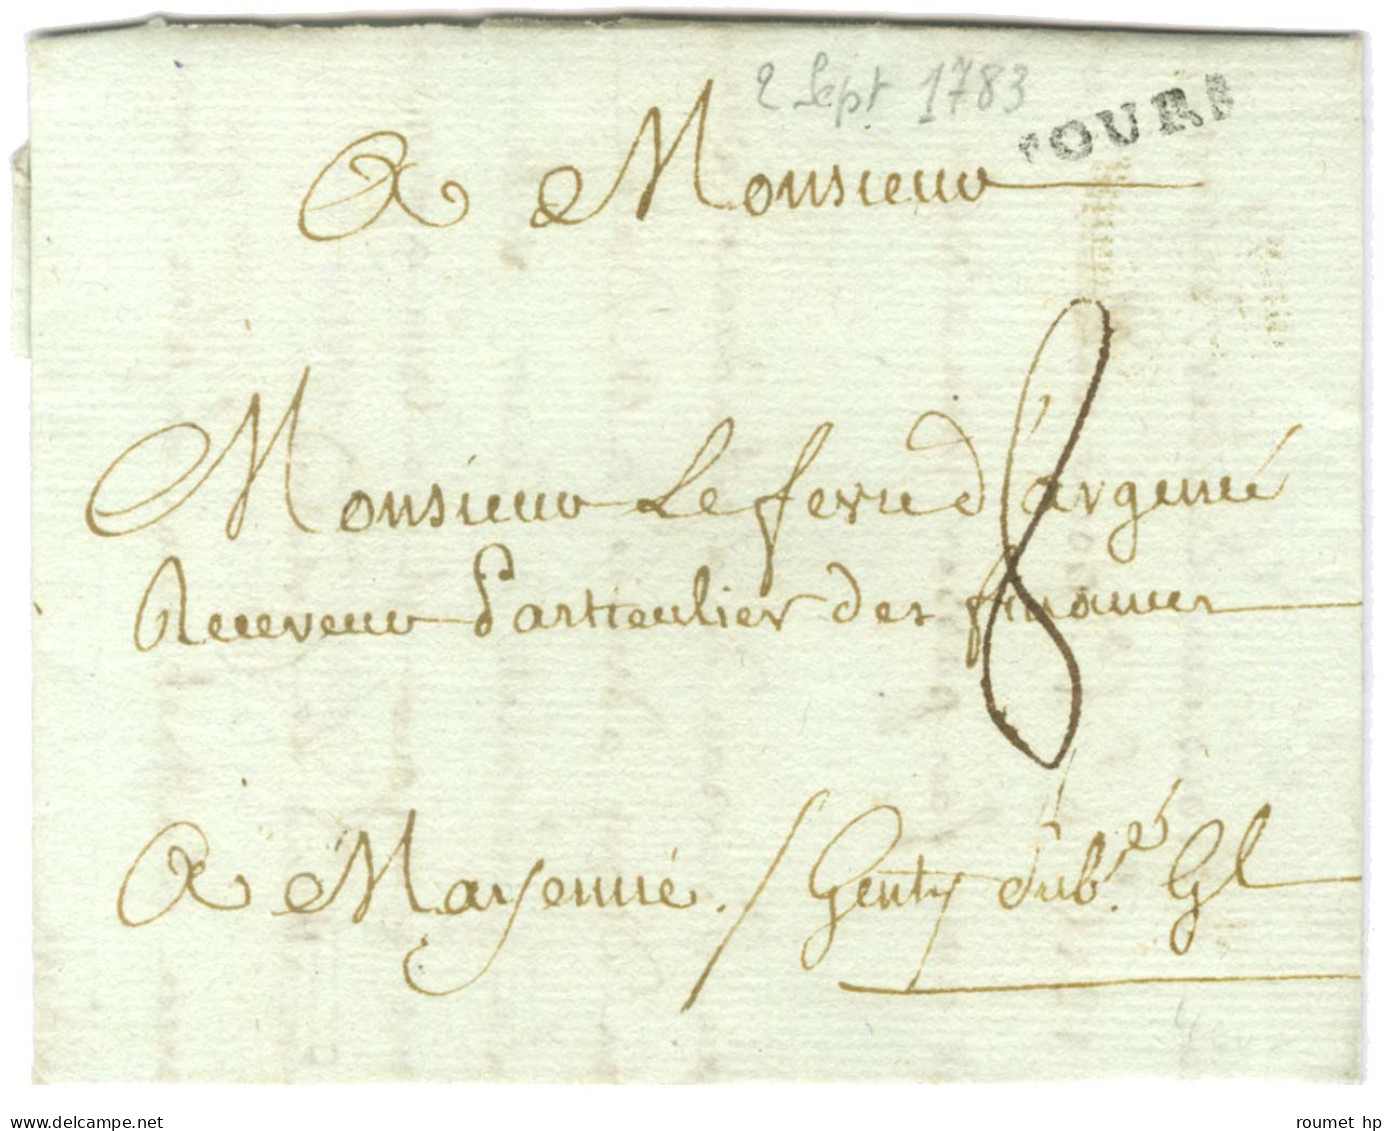 2 Sept 1783
TOURS
A Monsieur
Monsieur Lefevre d'argenné
Receveur Particulier des finances
8
A Mayenne. / Genty Gl
delcampe.net
roumet hp